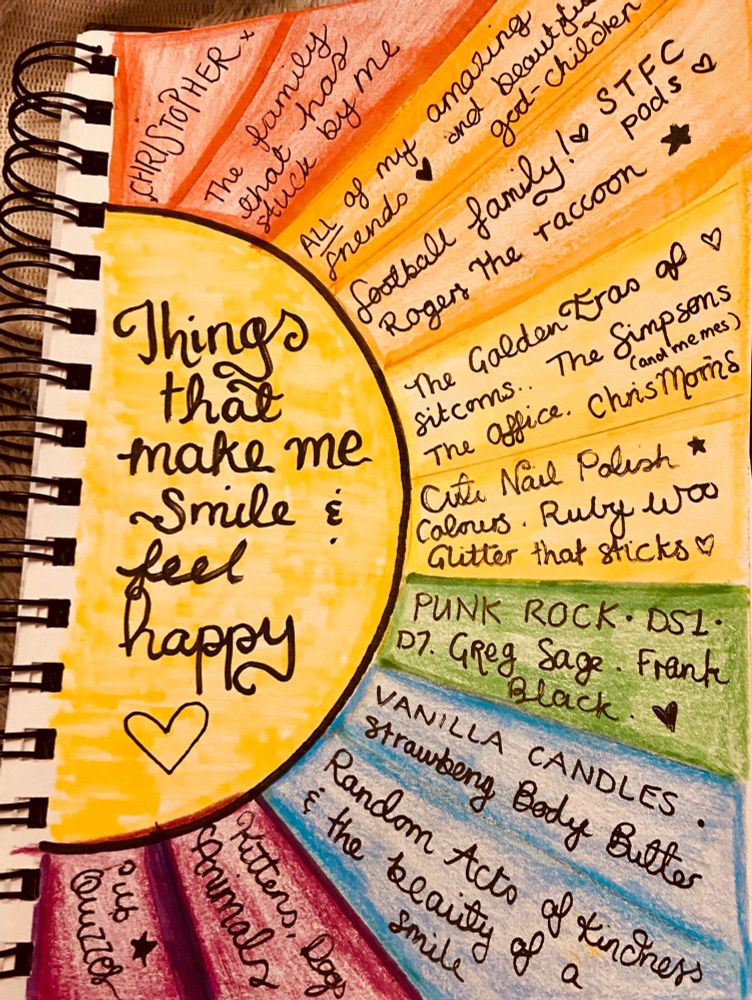 Things
that
make me
smile &
feel
happy
CHRISTOPHER x
The family
that has
stuck by me
ALL of my amazing
and beautiful
friends
god-children
football family! STFC
pods
Rogers the raccoon
The Golden Eras of
sitcoms.. The Simpsons
(and memes)
The Office. Chris Morris
Cute Nail Polish
Colours. Ruby Woo
Glitter that sticks
PUNK ROCK. DS1.
D7. Greg Sage. Frank
Black.
VANILLA CANDLES.
Strawberry Body Butter
Random Acts of Kindness
& the beauty of a
smile
Kittens, Dogs
Animals
Pub
Quizzes